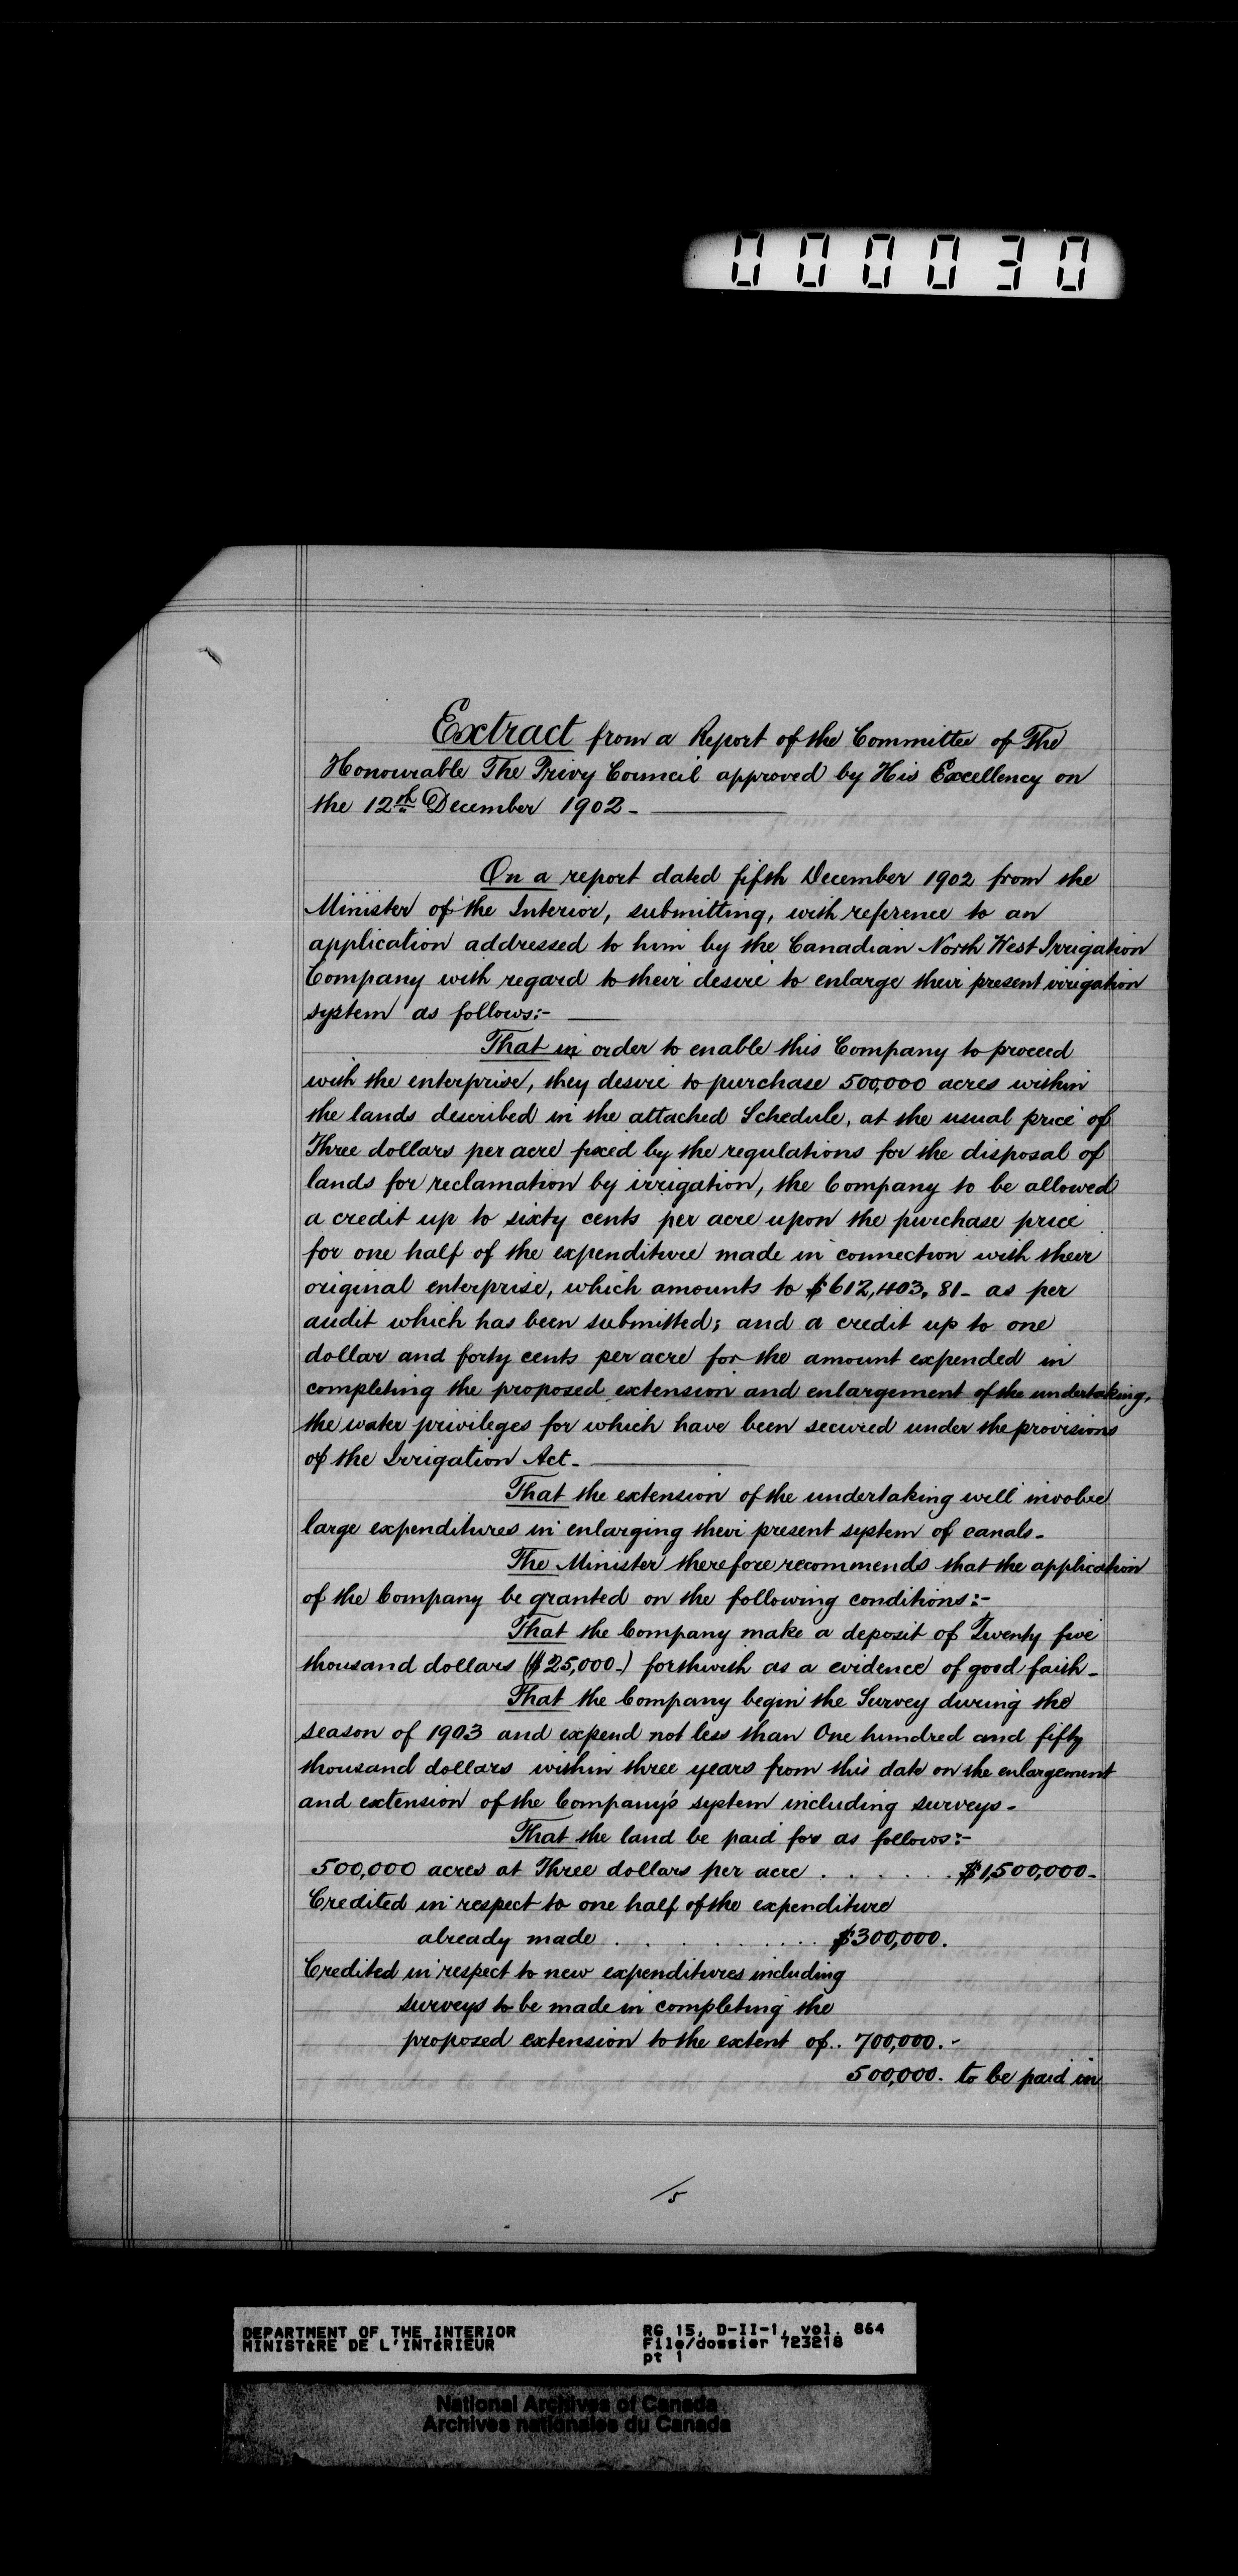 000030
Extract from a Report of the Committee of The
Honourable The Privy Council approved by His Excellency on
the 12th December 1902-
On a report dated fifth December 1902 from the
Minister of the Interior, submitting, with reference to an
application addressed to him by the Canadian North West Irrigation
Company with regard to their desire to enlarge their present irrigation
system as follows:-
That in order to enable this Company to proceed
with the enterprise, they desire to purchase 500,000 acres within
the lands described in the attached Schedule, at the usual price of
Three dollars per acre fixed by the regulations for the disposal of
lands for reclamation by irrigation, the Company to be allowed
a credit up to sixty cents per acre upon the purchase price
for one half of the expenditure made in connection with their
original enterprise, which amounts to $612,403.81- as per
audit which has been submitted; and a credit up to one
dollar and forty cents per acre for the amount expended in
completing the proposed extension and enlargement of the undertaking,
the water privileges for which have been secured under the provisions
of the Irrigation Act-
That the extension of the undertaking will involve
large expenditures in enlarging their present system of canals-
The Minister therefore recommends that the application
of the Company be granted on the following conditions:-
That the Company make a deposit of Twenty five
thousand dollars ($25,000-) forthwith as a evidence of good faith-
That the Company begin the Survey during the
season of 1903 and expend not less than One hundred and fifty
thousand dollars within three years from this date on the enlargement
and extension of the Company's system including surveys-
That the land be paid for as follows:-
500,000 acres at Three dollars per acre . . . . . . $1,500,000-
Credited in respect to one half of the expenditure
already made . . . . . . . . $300,000.
Credited in respect to new expenditures including
surveys to be made in completing the
proposed extension to the extent of.. 700,000.-
500,000. to be paid in
/5
DEPARTMENT OF THE INTERIOR
MINISTÈRE DE L'INTÉRIEUR
RG 15, D-II-1, vol. 864
File/dossier 723218
pt 1
National Archives of Canada
Archives nationales du Canada